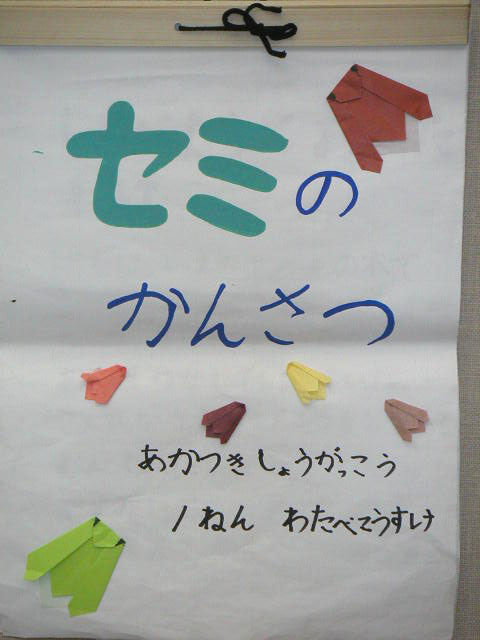 セミの
かんさつ
あかつきしょうがっこう
1ねん わたべこうすけ